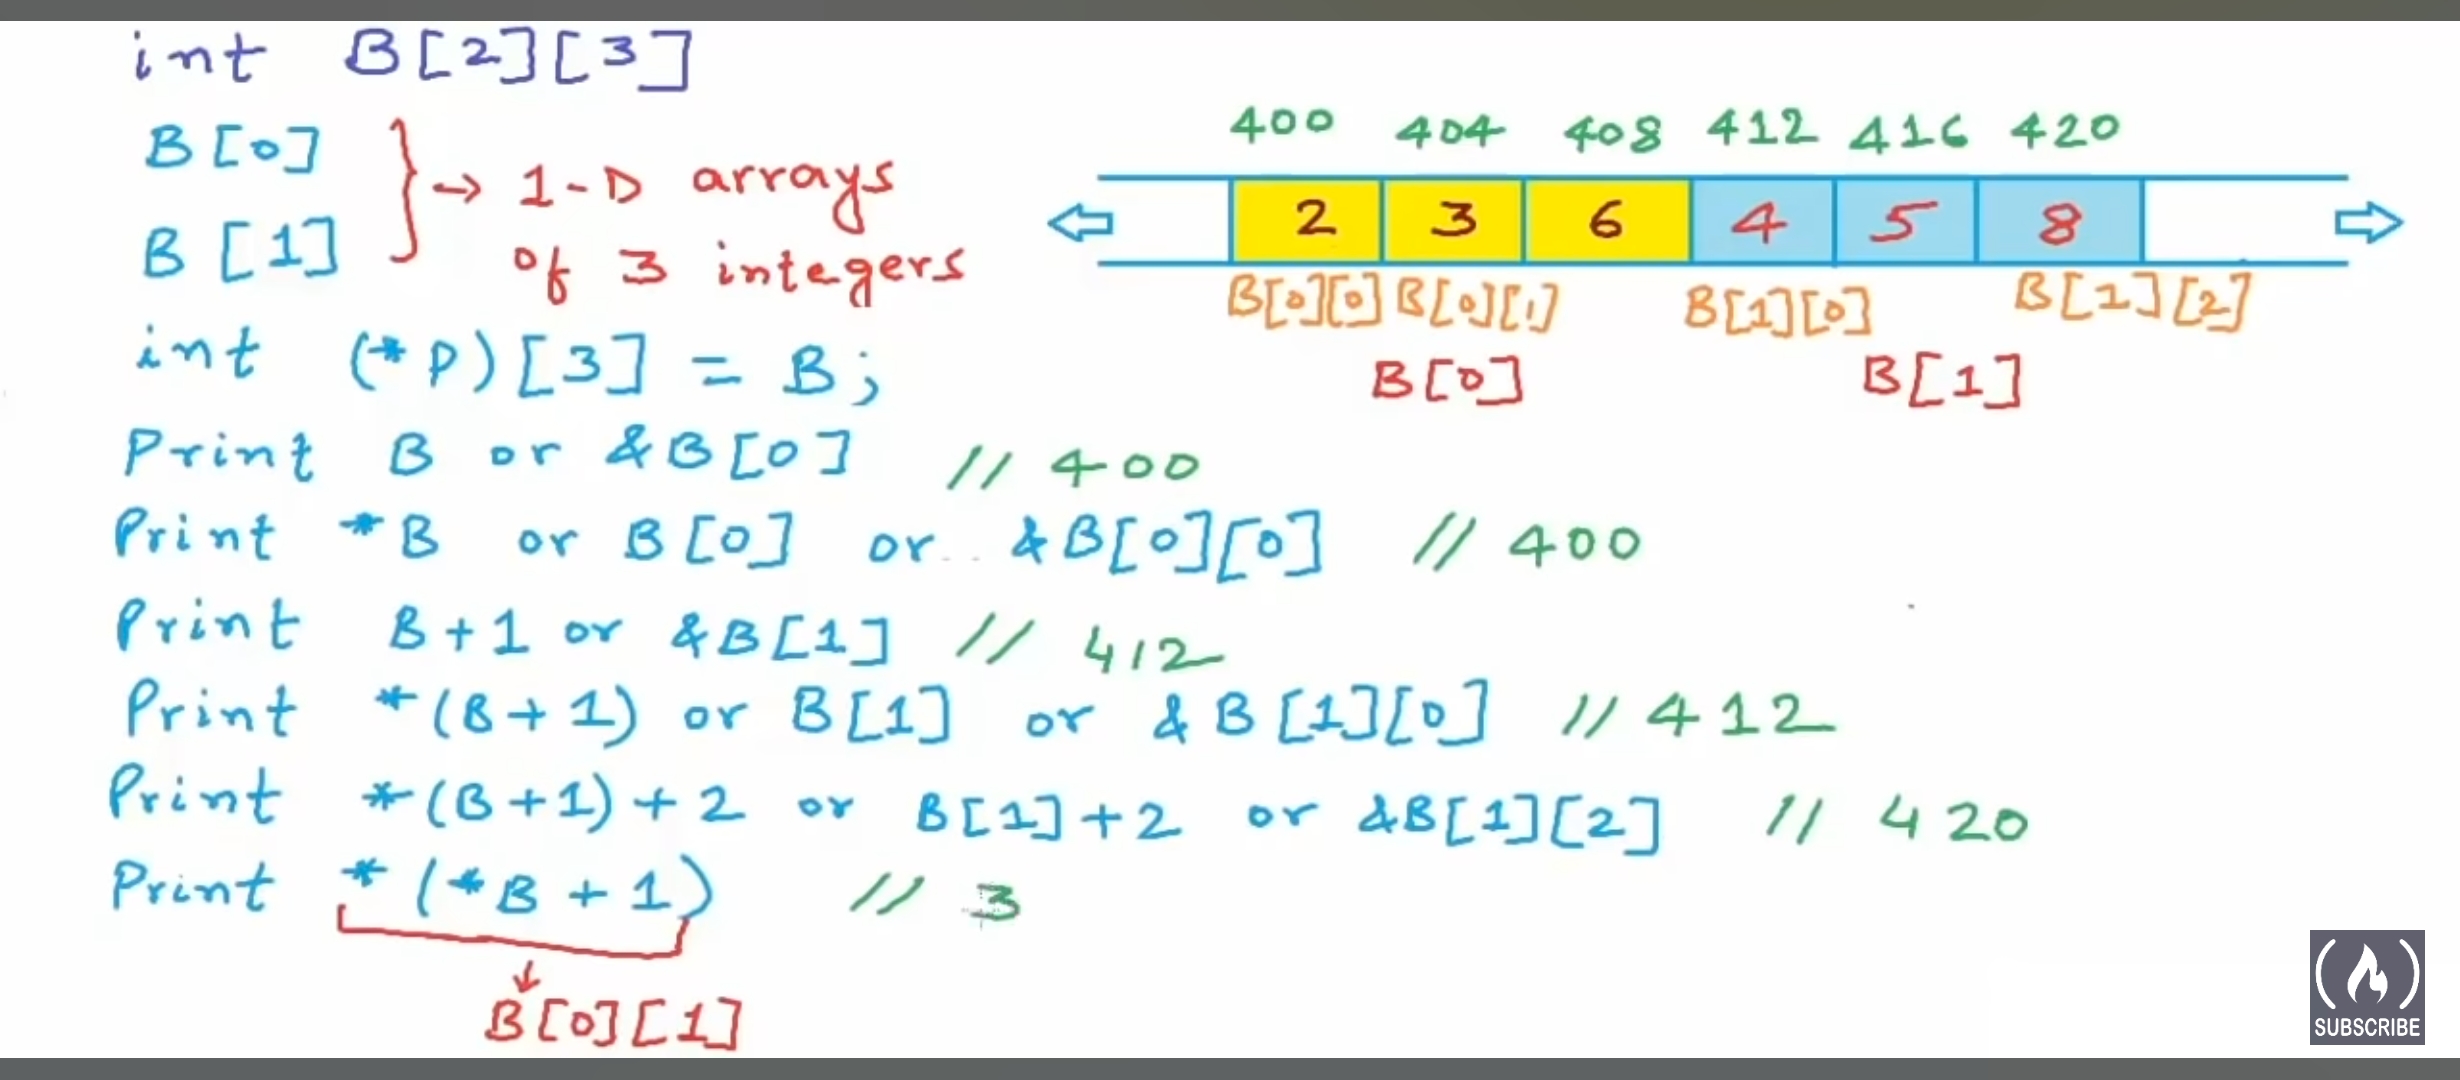 int B[2][3]
400 404 408 412 416 420
B[0]
B[1]
} → 1-D arrays
of 3 integers
2 3 6 4 5 8
B[0][0] B[0][1] B[1][0] B[1][2]
B[0] B[1]
int (*P)[3] = B;
Print B or &B[0] // 400
Print *B or B[0] or &B[0][0] // 400
Print B+1 or &B[1] // 412
Print *(B+1) or B[1] or &B[1][0] // 412
Print *(B+1)+2 or B[1]+2 or &B[1][2] // 420
Print *(*B+1) // 3
B[0][1]
SUBSCRIBE